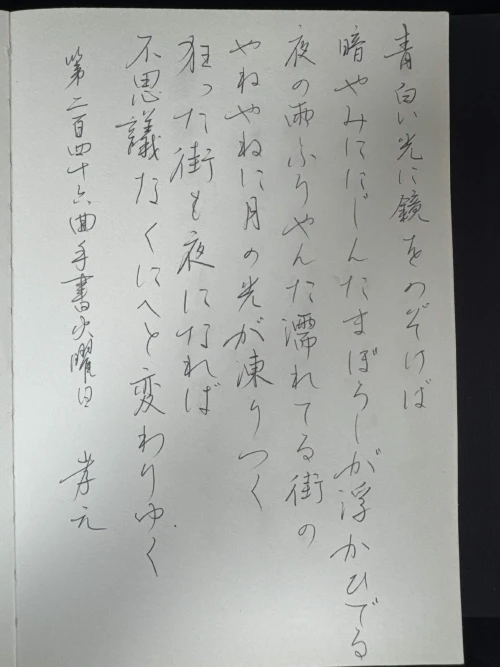 青白い光に鏡をのぞけば
暗やみににじんだまぼろしが浮かひでる
夜の雨ふりやんだ濡れてる街の
やねやねに月の光が凍りつく
狂った街も夜になれば
不思議なくにへと変わりゆく
第二百四十六曲手書火曜日 孝元